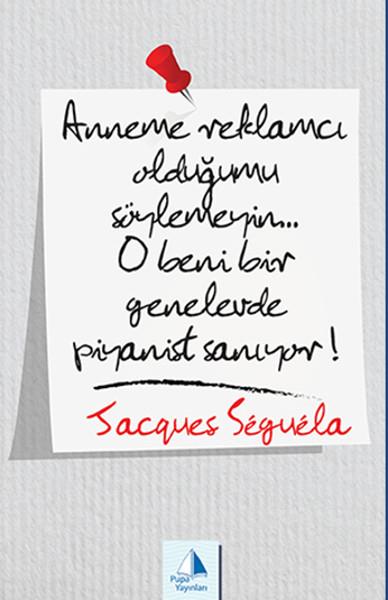 Anneme reklamcı
olduğumu
söylemeyin...
O beni bir
genelevde
piyanist sanıyor!
Jacques Séguéla
Pupa
Yayınları